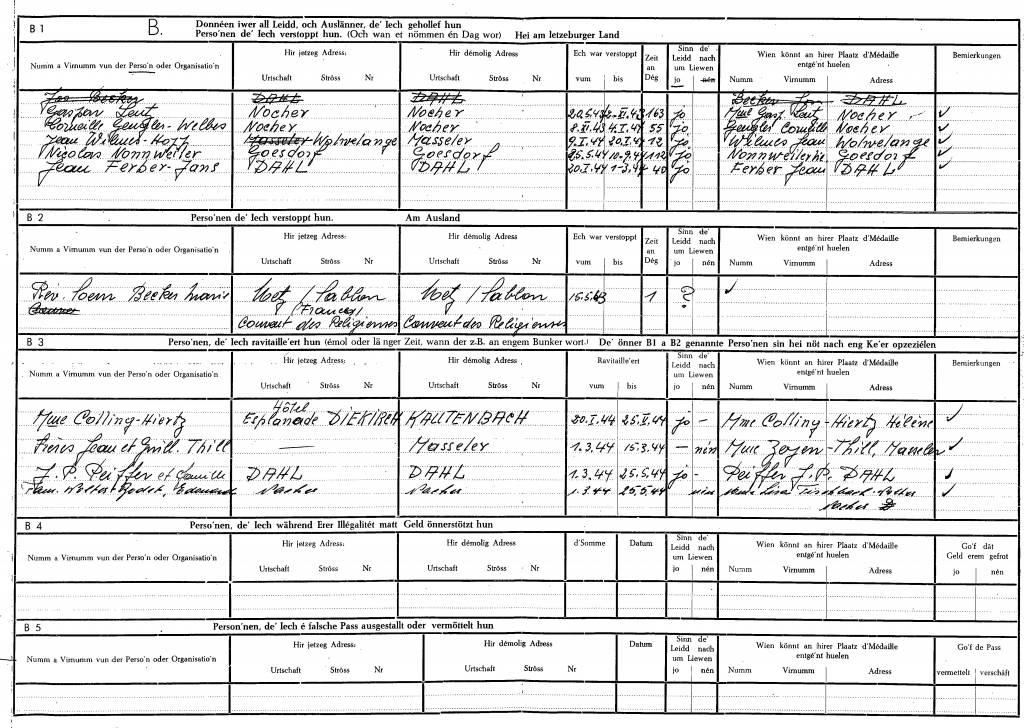 B 1 B. Donnéen iwer all Leidd, och Auslänner, de' Iech gehollef hun
Perso'nen de' Iech verstoppt hun. (Och wan et nömmen én Dag wor) Hei am letzeburger Land
Numm a Virnumm vun der Perso'n oder Organisatio'n Hir jetzeg Adress: Hir démolig Adress Ech war verstoppt Zeit an Dég Sinn de' Leidd nach um Liewen Wien könnt an hirer Plaatz d'Médaille entgé'nt huelen Bemierkungen
Urtschaft Ströss Nr Urtschaft Ströss Nr vum bis jo nén Numm Virnumm Adress
Jos Becker DAHL DAHL Becker Jos DAHL
Gaspar Leut Nocher Nocher 163 jo Mme Gasp. Leut Nocher ✓
Corneille Gengler-Welbes Nocher Nocher 8.XI.43 4.I.44 55 jo Gengler Corneille Nocher ✓
Jean Wilmes-Roth Masseler Wolwelange Masseler 9.I.44 20.I.44 12 jo Wilmes Jean Wolwelange ✓
Nicolas Nonnweiler Goesdorf Goesdorf 25.5.44 10.9.44 112 jo Goesdorf ✓
Jean Ferber-Jans DAHL DAHL 20.I.44 1-3.44 40 jo Ferber Jean DAHL ✓
B 2 Perso'nen de' Iech verstoppt hun. Am Ausland
Numm a Virnumm vun der Perso'n oder Organisatio'n Hir jetzeg Adress: Hir démolig Adress Ech war verstoppt Zeit an Dég Sinn de' Leidd nach um Liewen Wien könnt an hirer Plaatz d'Médaille entgé'nt huelen Bemierkungen
Urtschaft Ströss Nr Urtschaft Ströss Nr vum bis jo nén Numm Virnumm Adress
Rév. Soeur Becker Marie Metz / Sablon Metz / Sablon 15.5.43 1 ? ✓
(France)
Couvent des Religieuses Couvent des Religieuses
B 3 Perso'nen, de' Iech ravitaille'ert hun (émol oder länger Zeit, wann der z.B. an engem Bunker wort.) De' önner B1 a B2 genannte Perso'nen sin hei nöt nach eng Ke'er opzeziélen
Numm a Virnumm vun der Perso'n oder Organisatio'n Hir jetzeg Adress: Hir démolig Adress Ravitaille'ert Sinn de' Leidd nach um Liewen Wien könnt an hirer Plaatz d'Médaille entgé'nt huelen Bemierkungen
Urtschaft Ströss Nr Urtschaft Ströss Nr vum bis jo nén Numm Virnumm Adress
Hôtel
Mme Colling-Hiertz Esplanade DIEKIRCH KAUTENBACH 20.I.44 25.II.44 jo - Mme Colling-Hiertz Hélène ✓
Frères Jean et Guill. Thill — Masseler 1.3.44 15.3.44 — nén Mme Zoyen-Thill, Masseler ✓
J.P. Peiffer et famille DAHL DAHL 1.3.44 25.5.44 jo - Peiffer J.P. DAHL ✓
Nocher Nocher 1.3.44 25.5.44 nén ✓
Nocher
B 4 Perso'nen, de' Iech während Erer Illégalitét matt Geld önnerstötzt hun
Numm a Virnumm vun der Perso'n oder Organisatio'n Hir jetzeg Adress: Hir démolig Adress d'Somme Datum Sinn de' Leidd nach um Liewen Wien könnt an hirer Plaatz d'Médaille entgé'nt huelen Go'f dât Geld erem gefrot
Urtschaft Ströss Nr Urtschaft Ströss Nr jo nén Numm Virnumm Adress jo nén
B 5 Person'nen, de' Iech é falsche Pass ausgestallt oder vermöttelt hun
Numm a Virnumm vun der Perso'n oder Organisatio'n Hir jetzeg Adress: Hir démolig Adress Datum Sinn de' Leidd nach um Liewen Wien könnt an hirer Plaatz d'Médaille entgé'nt huelen Go'f de Pass
Urtschaft Ströss Nr Urtschaft Ströss Nr jo nén Numm Virnumm Adress vermettelt verschâft